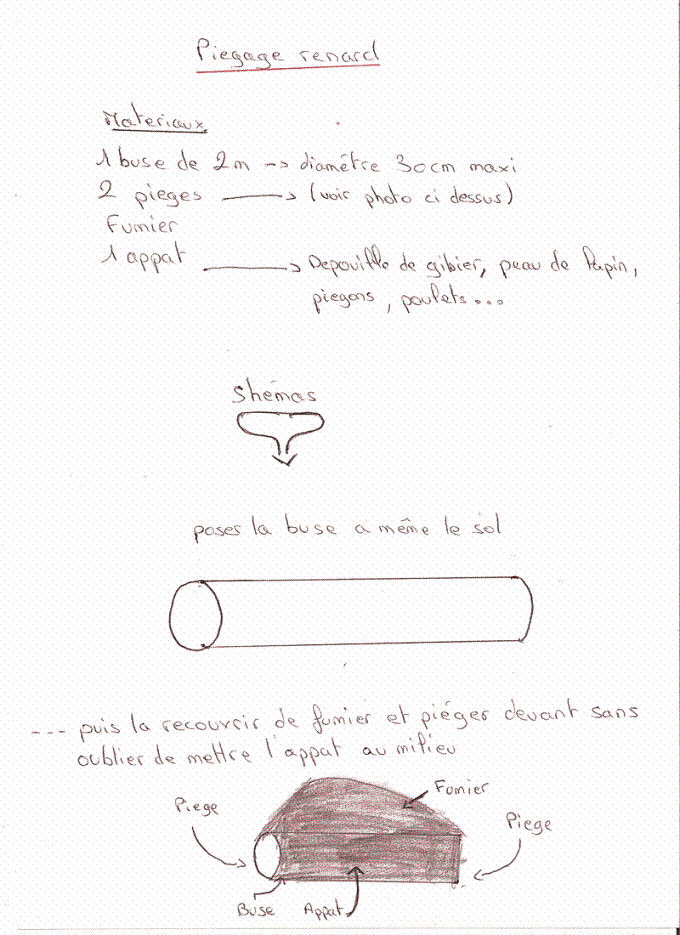 Piegage renard
Materiaux
1 buse de 2m -> diamêtre 30cm maxi
2 pieges -> (voir photo ci dessus)
Fumier
1 appat -> Depouille de gibier, peau de lapin,
piegons, poulets...
Shémas
poses la buse a même le sol
--- puis la recouvrir de fumier et piéger devant sans
oublier de mettre l'appat au milieu
Fumier
Piege
Piege
Buse Appat